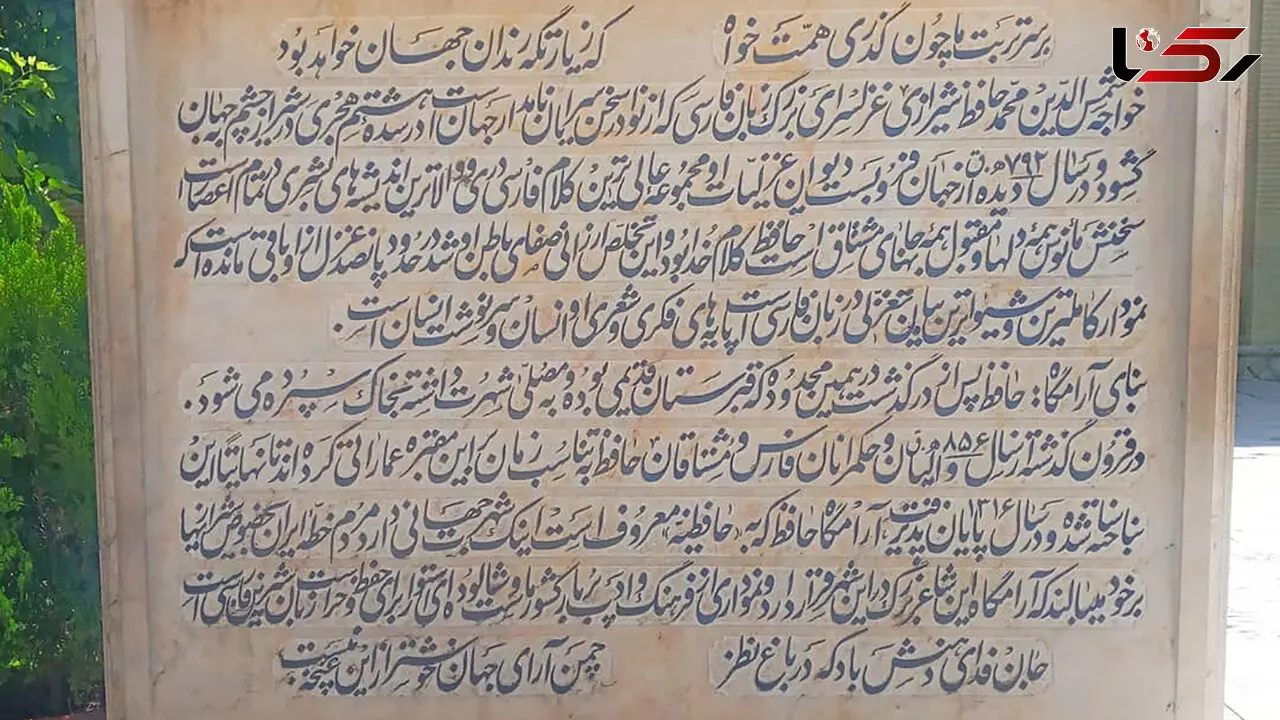 رکنا
بر سر تربت ما چون گذری همّت خواه که زیارتگه رندان جهان خواهد بود
خواجه شمس الدّین محمّد حافظ شیرازی غزلسرای بزرگ زبان فارسی که از نوادر سخن سرایان نامدار جهان است در سده هشتم هجری در شیراز چشم به جهان
گشود و در سال ۷۹۲ ه‍ ق دیده از جهان فرو بست دیوان غزلیات او مجموعه عالی ترین کلام فارسی دری و والاترین اندیشه های بشری در تمام اعصار است
سخنش مأنوس همه دلها و مقبول همه جانهای مشتاق است حافظ کلام خدا بود و این تخلص ارزانی صفای باطن او شد در حدود پانصد غزل از او باقی مانده است که
نمودار کاملترین و شیواترین بیان تغزلی در زبان فارسی است پایه های فکری و شعری او انسان و سرنوشت انسان است .
بنای آرامگاه : حافظ پس از درگذشت در همین محدوده که قبرستان قدیمی بوده و به مصلّی شهرت داشته بخاک سپرده می شود .
در قرون گذشته از سال ۸۵۶ ه‍ ق والیان و حکمرانان فارس و مشتاقان حافظ به تناسب زمان بر این مقبره عماراتی کرده اند تا نهایتا این
بنا ساخته شده و در سال ۱۳۱۶ پایان پذیرفت آرامگاه حافظ که به «حافظیّه» معروف است اینک شهرت جهانی دارد مردم خطه ایران بخصوص شیرازیها
بر خود میبالند که آرامگاه این شاعر بزرگ در این شهر قرار دارد و نموداری از فرهنگ و ادب پربار کشور ماست و شالوده ای استوار برای حفظ و حراست زبان شیرین فارسی است
جان فدای دهنش باد که در باغ نظر چمن آرای جهان خوشتر از این غنچه نبست